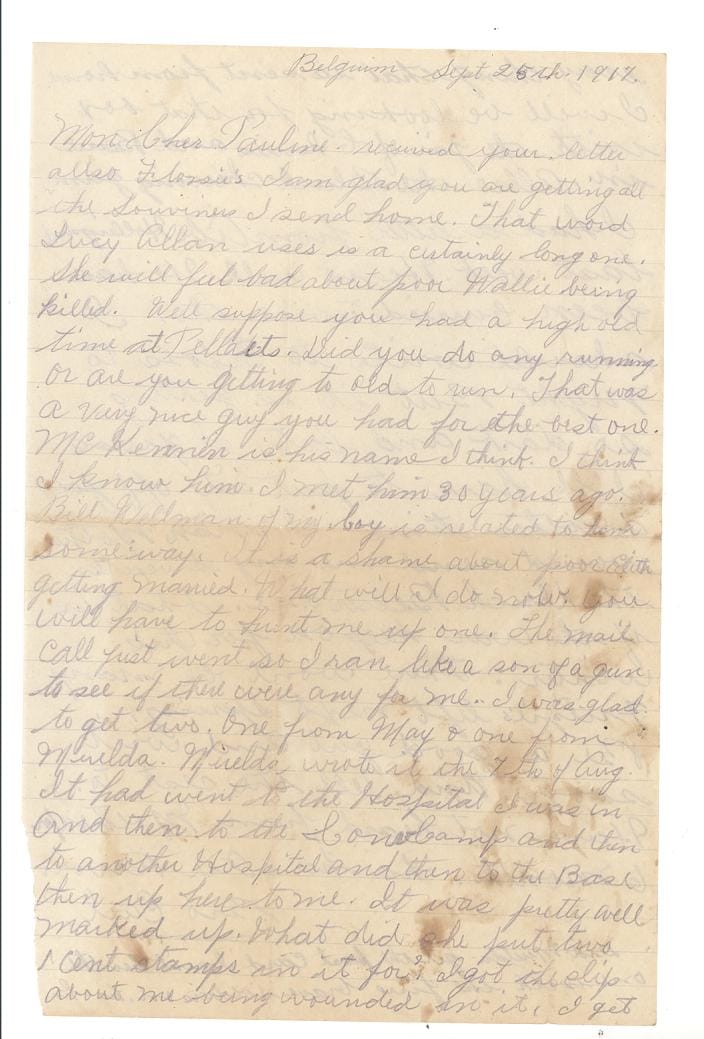 Belgium Sept 25th. 1917.
Mon Cher Pauline. recived your letter
allso Flossie's I am glad you are getting all
the Souviners I send home. That word
Lucy Allan uses is a certainly long one.
She will feel bad about poor Wallie being
killed. Well suppose you had a high old
time at Pellaets. Did you do any running
or are you getting to old to run. That was
a very nice guy you had for the best one.
Mc Kennien is his name I think. I think
I know him. I met him 30 years ago.
Bill Wellman of my boy is related to him
some way. It is a shame about poor
getting married. What will I do now. You
will have to hunt me up one. The mail
call just went so I ran like a son of a gun
to see if there were any for me. I was glad
to get two. One from May & one from
Nuelda. Nuelda wrote it the 7th of Aug.
It had went to the Hospital I was in
And then to the Camp and then
to another Hospital and then to the Base
then up here to me. It was pretty well
marked up. What did she put two
1 Cent stamps in it for? I got the clip
about me being wounded in it, I get